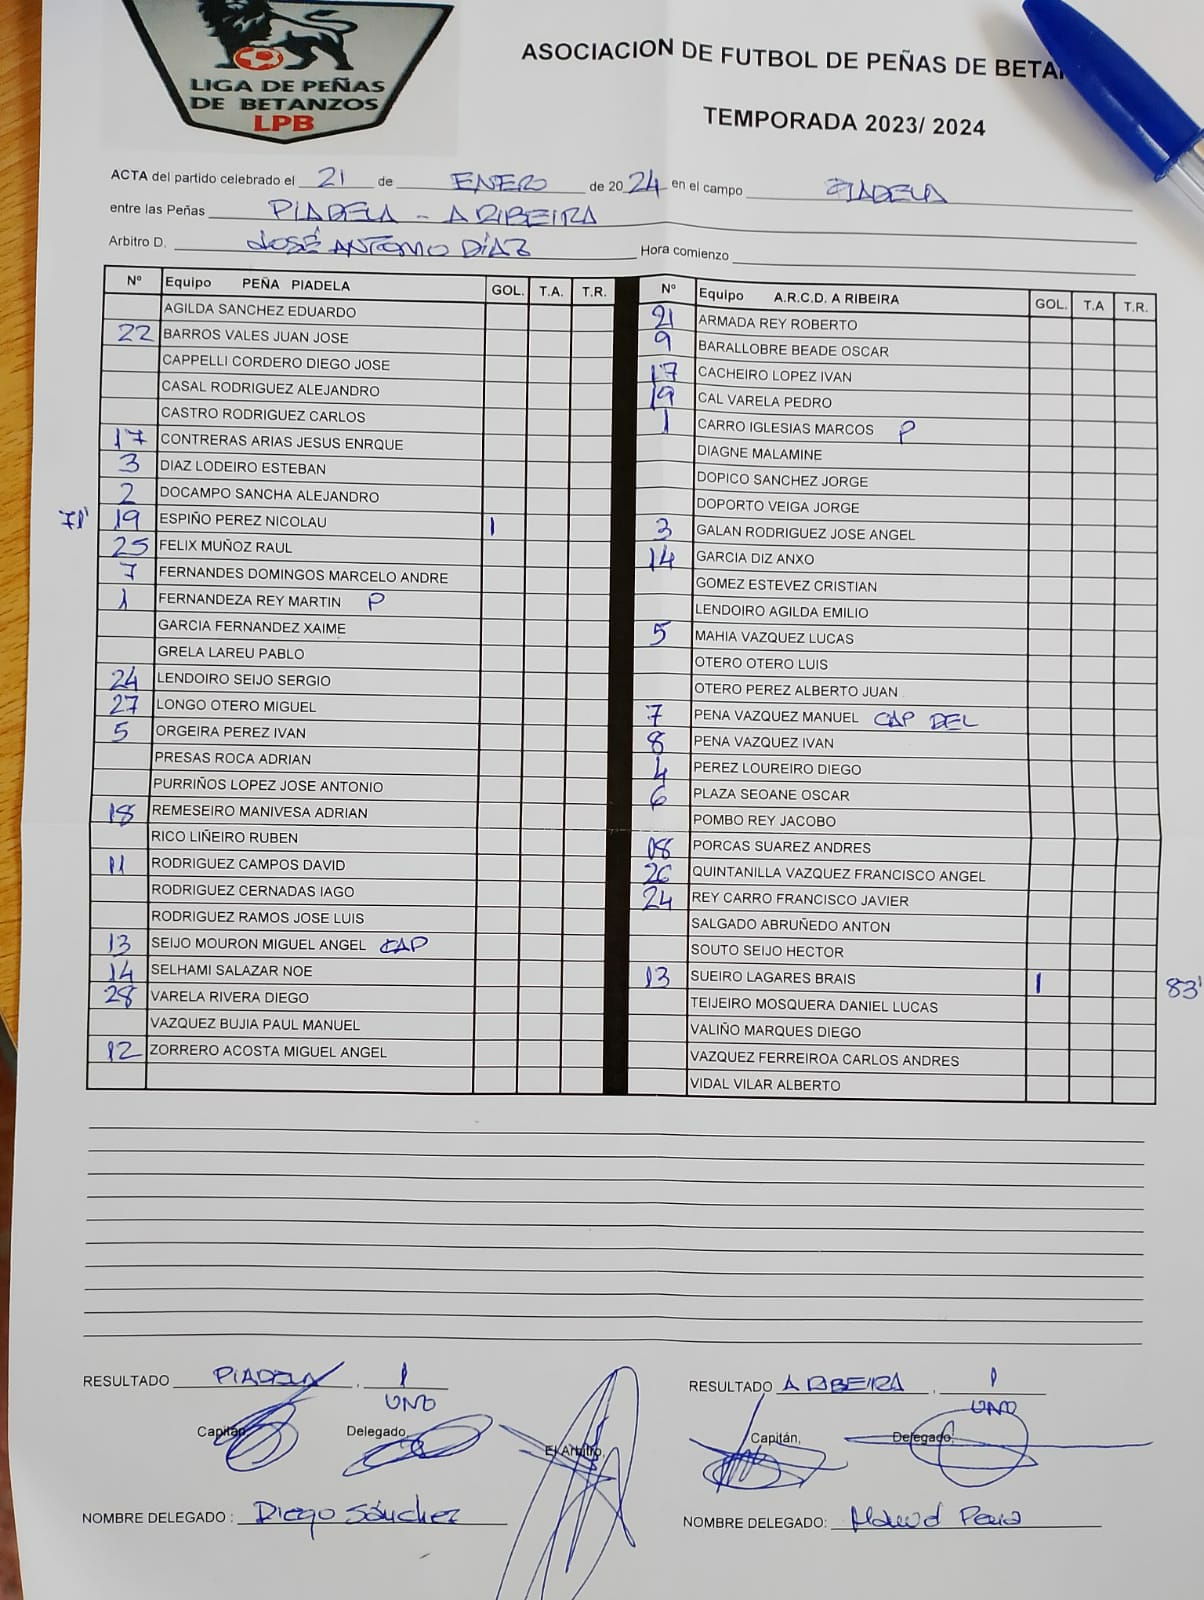 LIGA DE PEÑAS
DE BETANZOS
LPB
ASOCIACION DE FUTBOL DE PEÑAS DE
TEMPORADA 2023/ 2024
ACTA del partido celebrado el 21 de ENERO de 2024 en el campo PIADELA
entre las Peñas PIADELA - A RIBEIRA
Arbitro D. JOSÉ ANTONIO DÍAZ Hora comienzo
Nº Equipo PEÑA PIADELA GOL. T.A. T.R.
AGILDA SANCHEZ EDUARDO
22 BARROS VALES JUAN JOSE
CAPPELLI CORDERO DIEGO JOSE
CASAL RODRIGUEZ ALEJANDRO
CASTRO RODRIGUEZ CARLOS
17 CONTRERAS ARIAS JESUS ENRQUE
3 DIAZ LODEIRO ESTEBAN
2 DOCAMPO SANCHA ALEJANDRO
71' 19 ESPIÑO PEREZ NICOLAU 1
25 FELIX MUÑOZ RAUL
7 FERNANDES DOMINGOS MARCELO ANDRE
1 FERNANDEZA REY MARTIN P
GARCIA FERNANDEZ XAIME
GRELA LAREU PABLO
24 LENDOIRO SEIJO SERGIO
27 LONGO OTERO MIGUEL
5 ORGEIRA PEREZ IVAN
PRESAS ROCA ADRIAN
PURRIÑOS LOPEZ JOSE ANTONIO
18 REMESEIRO MANIVESA ADRIAN
RICO LIÑEIRO RUBEN
11 RODRIGUEZ CAMPOS DAVID
RODRIGUEZ CERNADAS IAGO
RODRIGUEZ RAMOS JOSE LUIS
13 SEIJO MOURON MIGUEL ANGEL CAP
14 SELHAMI SALAZAR NOE
28 VARELA RIVERA DIEGO
VAZQUEZ BUJIA PAUL MANUEL
12 ZORRERO ACOSTA MIGUEL ANGEL
Nº Equipo A.R.C.D. A RIBEIRA GOL. T.A T.R.
21 ARMADA REY ROBERTO
9 BARALLOBRE BEADE OSCAR
17 CACHEIRO LOPEZ IVAN
19 CAL VARELA PEDRO
1 CARRO IGLESIAS MARCOS P
DIAGNE MALAMINE
DOPICO SANCHEZ JORGE
DOPORTO VEIGA JORGE
3 GALAN RODRIGUEZ JOSE ANGEL
14 GARCIA DIZ ANXO
GOMEZ ESTEVEZ CRISTIAN
LENDOIRO AGILDA EMILIO
5 MAHIA VAZQUEZ LUCAS
OTERO OTERO LUIS
OTERO PEREZ ALBERTO JUAN
7 PENA VAZQUEZ MANUEL CAP DEL
8 PENA VAZQUEZ IVAN
4 PEREZ LOUREIRO DIEGO
6 PLAZA SEOANE OSCAR
POMBO REY JACOBO
18 PORCAS SUAREZ ANDRES
26 QUINTANILLA VAZQUEZ FRANCISCO ANGEL
24 REY CARRO FRANCISCO JAVIER
SALGADO ABRUÑEDO ANTON
SOUTO SEIJO HECTOR
13 SUEIRO LAGARES BRAIS 1 83'
TEIJEIRO MOSQUERA DANIEL LUCAS
VALIÑO MARQUES DIEGO
VAZQUEZ FERREIROA CARLOS ANDRES
VIDAL VILAR ALBERTO
RESULTADO PIADELA . 1 RESULTADO A RIBEIRA . 1
UNO UNO
Capitán Delegado, El Arbitro, Capitán, Delegado,
NOMBRE DELEGADO : Diego Sánchez NOMBRE DELEGADO: Manuel Pena